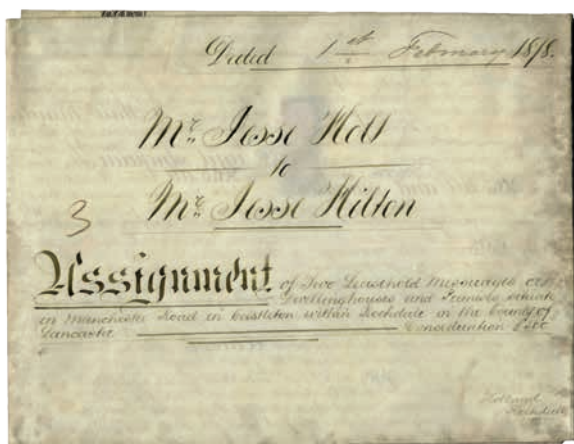 Dated 1st February 1878.
Mr. Jesse Holt
to
Mr. Jesse Hilton
3
Assignment of Two Leasehold Messuages or
Dwellinghouses and Premises situate
in Manchester Road in Castleton within Rochdale in the County of
Lancaster Consideration
Holland
Rochdale